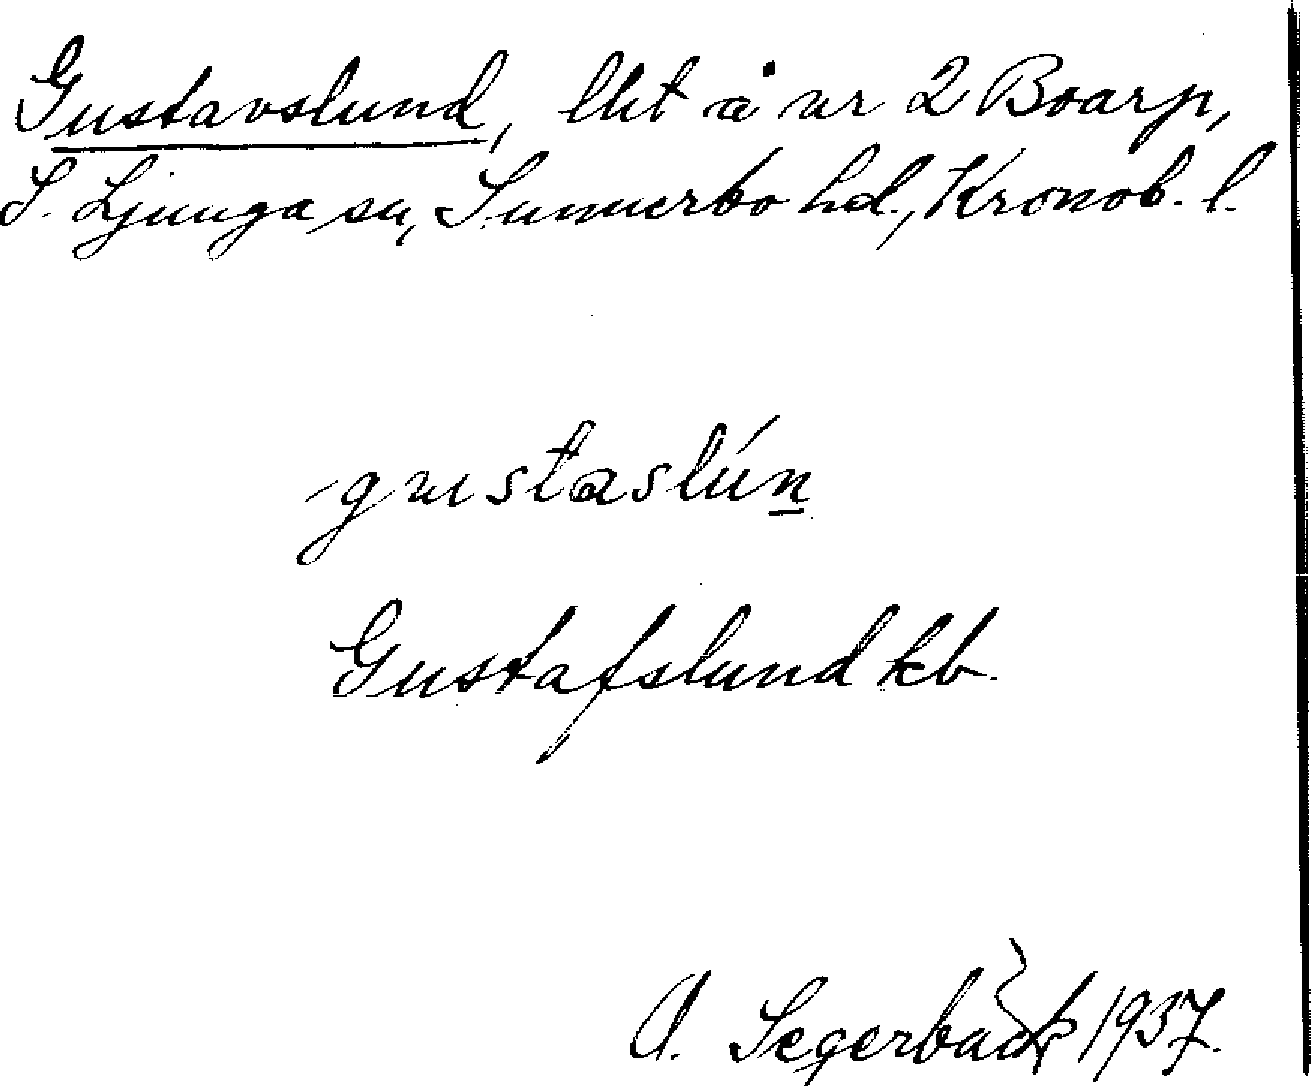 Gustavslund, lht å nr 2 Boarp,
S. Ljunga sn, Sunnerbo hd., Kronob. l.
gustaslún
Gustafslund kb.
A. Segerbäck 1937.